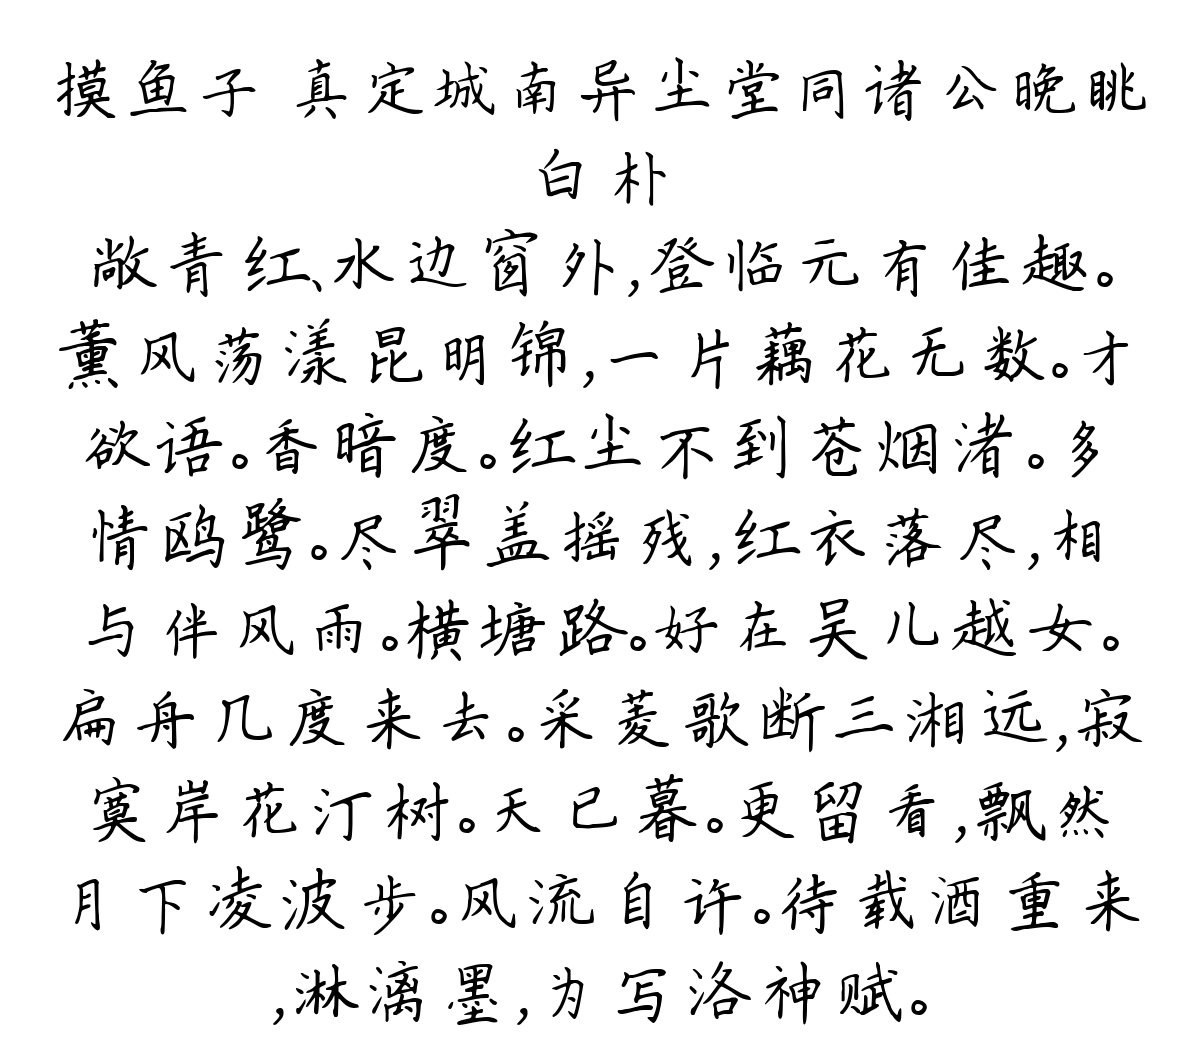 摸鱼子 真定城南异尘堂同诸公晚眺
白朴
敞青红、水边窗外,登临元有佳趣。
薰风荡漾昆明锦,一片藕花无数。才
欲语。香暗度。红尘不到苍烟渚。多
情鸥鹭。尽翠盖摇残,红衣落尽,相
与伴风雨。横塘路。好在吴儿越女。
扁舟几度来去。采菱歌断三湘远,寂
寞岸花汀树。天已暮。更留看,飘然
月下凌波步。风流自许。待载酒重来
,淋漓墨,为写洛神赋。